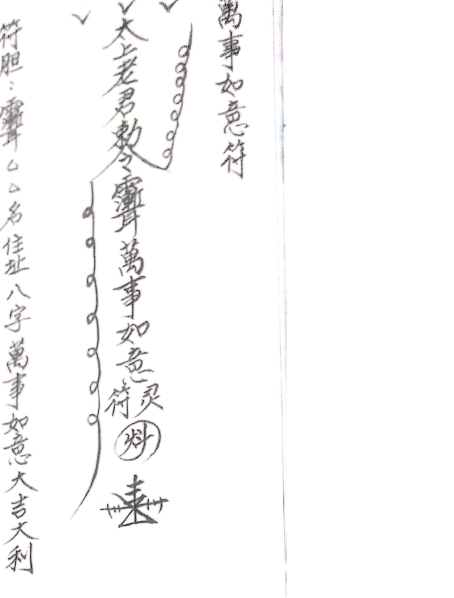 萬事如意符
太上老君勅令 萬事如意灵符
符胆：ムム名住址八字萬事如意大吉大利